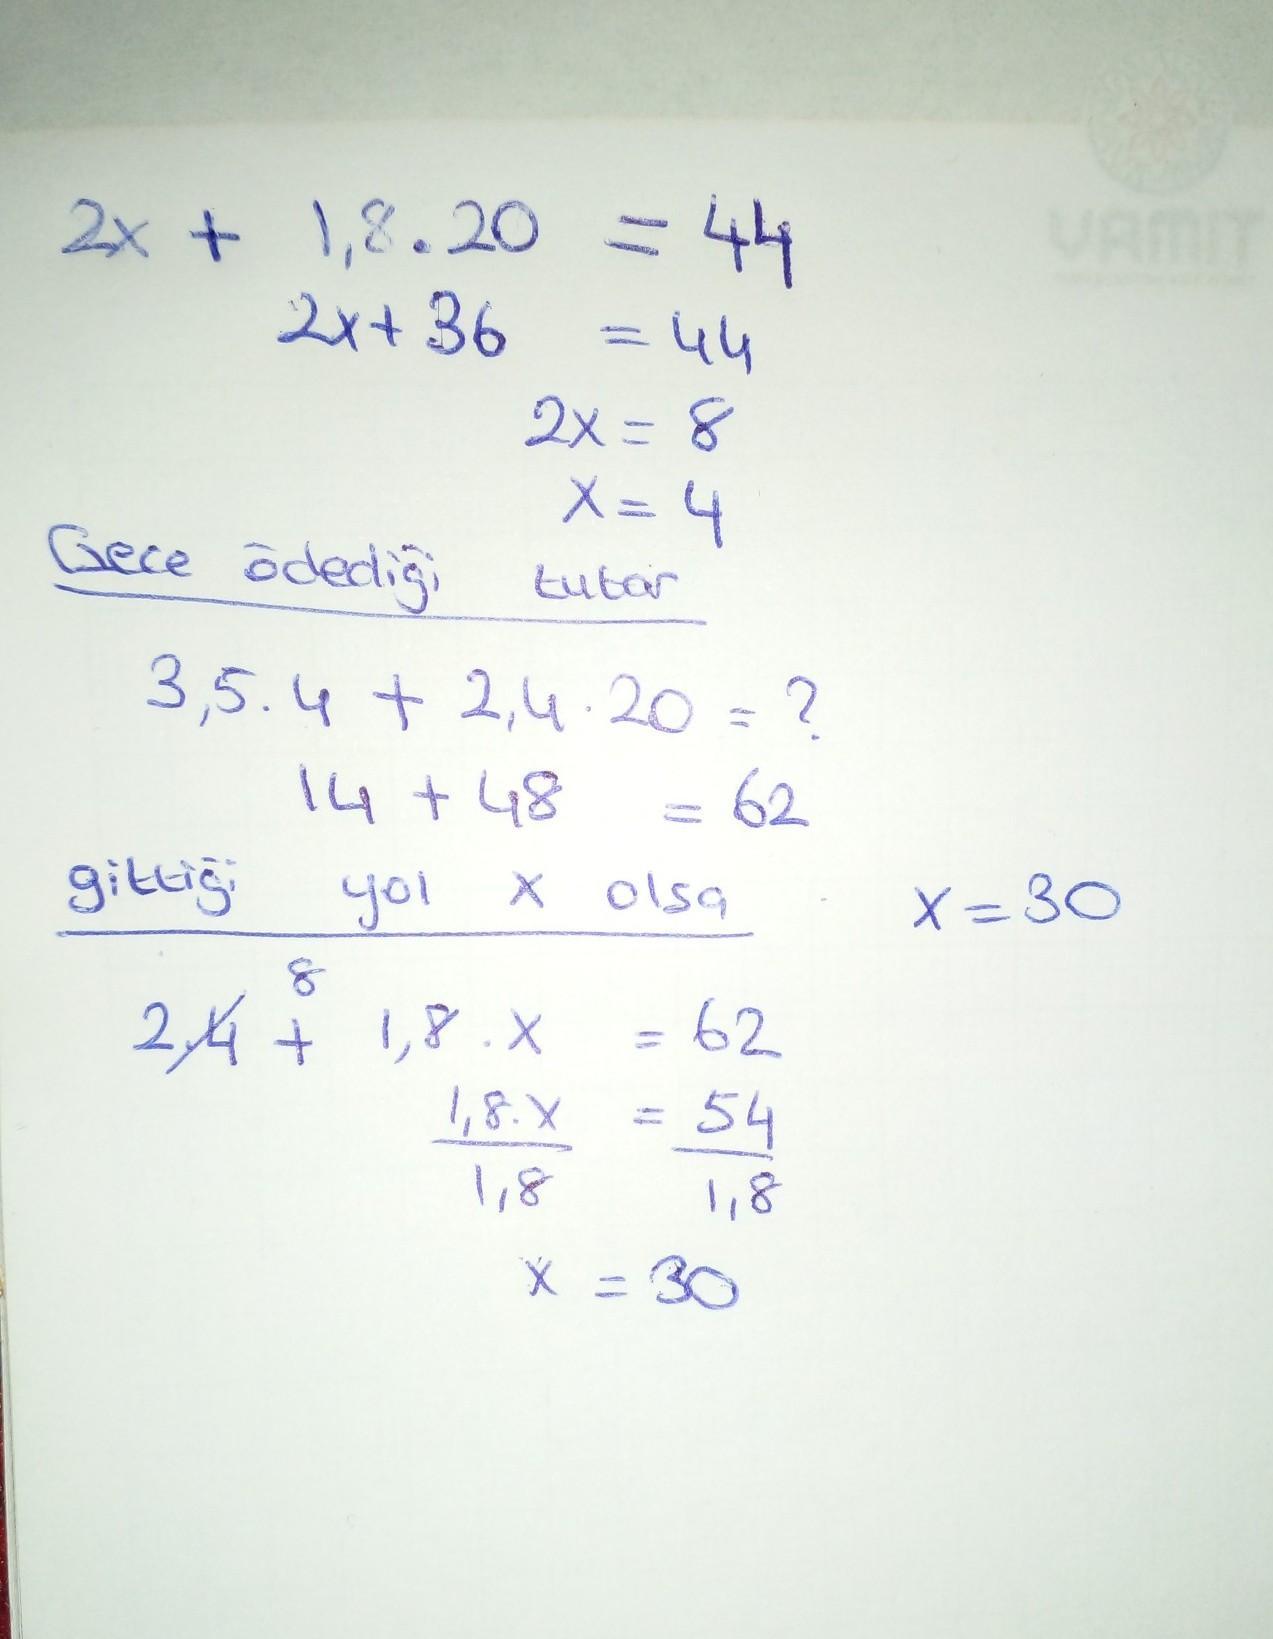 2x + 1,8.20 = 44
2x+36 = 44
2x = 8
x = 4
Gece ödediği tutar
3,5.4 + 2,4.20 = ?
14 + 48 = 62
gittiği yol x olsa x = 30
8
2.4 + 1,8.x = 62
1,8.x = 54
1,8 1,8
x = 30